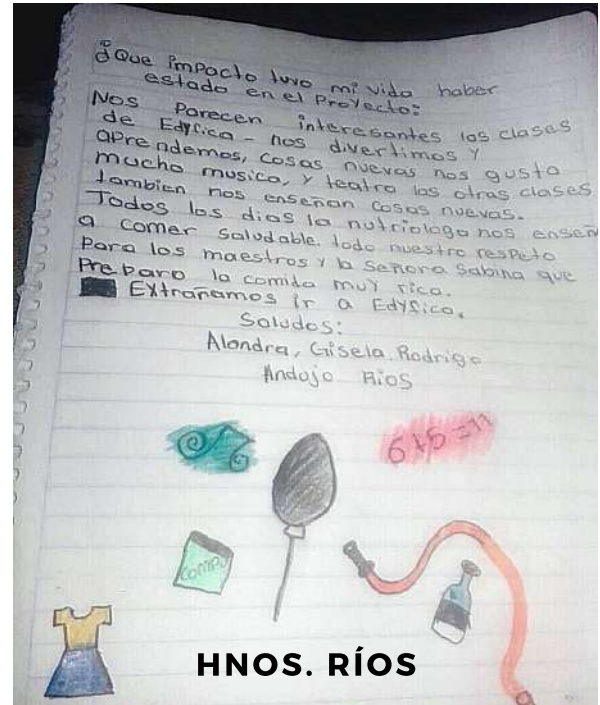 ¿Que impacto tuvo mi vida haber
estado en el Proyecto:
Nos Parecen interesantes las clases
de Edyfica - nos divertimos y
aprendemos, cosas nuevas nos gusta
mucho musica, y teatro las otras clases
Tambien nos enseñan cosas nuevas.
Todos los dias la nutriologa nos enseñ
a comer saludable. todo nuestro respeto
Para los maestros y la Señora Sabina que
Preparo la comida muy rica.
Extrañamos ir a Edyfica.
Saludos:
Alondra, Gisela. Rodrigo
Andujo Rios
6+5=11
COMPU
HNOS. RÍOS